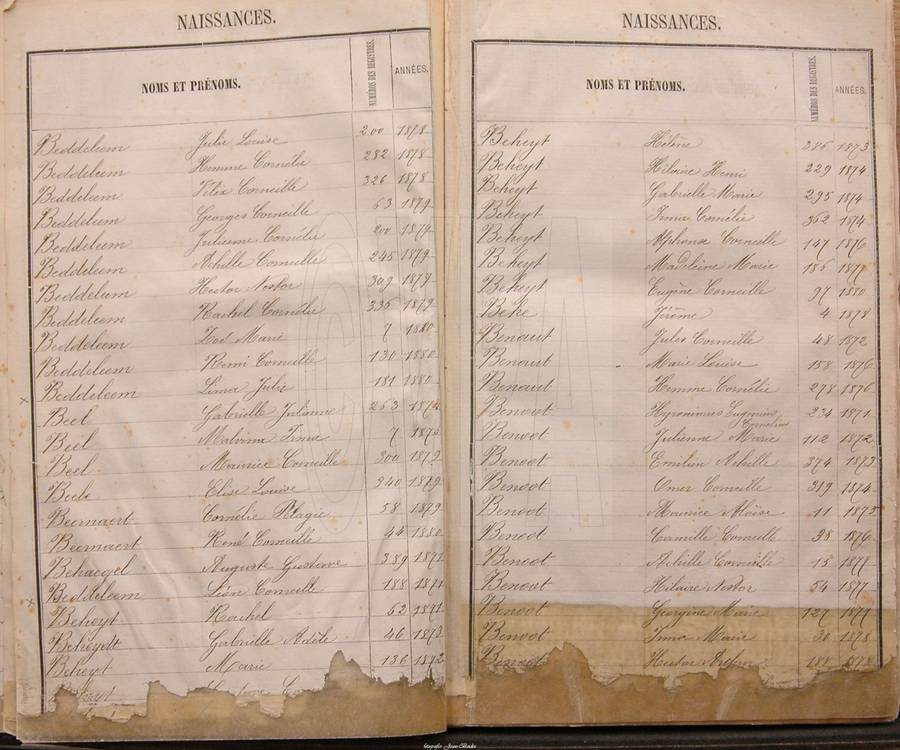 NAISSANCES.
NOMS ET PRÉNOMS. NUMÉROS DES REGISTRES. ANNÉES.
Beddeleem Julie Louise 200 1878
Beddeleem Hemma Cornélie 282 1878
Beddeleem Félix Corneille 326 1878
Beddeleem Georges Corneille 63 1879
Beddeleem Julienne Cornélie 200 1879
Beddeleem Achille Corneille 245 1879
Beddeleem Hector Nestor 309 1879
Beddeleem Rachel Cornélie 336 1879
Beddeleem Zoé Marie 7 1880
Beddeleem Remi Corneille 130 1880
Beddeleem Lima Julie 181 1880
Beel Gabrielle Julienne 263
Beel Malvina Irma 7
Beel Maurice Corneille 300 1879
Beele Elise Louise 240 1879
Beernaert Cornélie Pélagie 58 1879
Beernaert René Corneille 44 1880
Behaegel Auguste Gustave 389 1871
Beddeleem Léon Corneille 188 1871
Beheyt Rachel 62 1871
Beheydt Gabrielle Adèle 46 1873
Beheyt Marie 136 1872
NAISSANCES.
NOMS ET PRÉNOMS. NUMÉROS DES REGISTRES. ANNÉES.
Beheyt Hélène 1873
Beheyt Hilaire Henri 229 1874
Beheyt Gabrielle Marie 295 1874
Beheyt Irma Cornélie 362 1874
Beheyt Alphonse Corneille 147 1876
Beheyt Madeleine Marie 186 1877
Beheyt Eugène Corneille 97 1880
Behe Jérôme 4 1878
Benaut Jules Corneille 48 1872
Benaut Marie Louise 158 1876
Benaut Hemma Cornélie 278 1876
Benoot Hyronimus Eugenius Cornelius 234 1871
Benoot Julienne Marie 112 1872
Benoot Emilien Achille 374 1873
Benoot Omer Corneille 389 1874
Benoot Maurice Aloïse 11 1875
Benoot Camille Corneille 38 1876
Benoot Achille Corneille 15 1877
Benoot Hilaire Nestor 54 1877
Benoot Georgine Marie 127 1877
Benoot Irma Marie 30 1878
Benoot Hector 188 1878